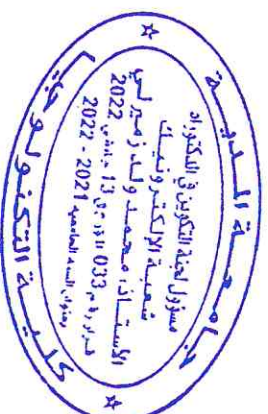 جامعة المدية
مسؤول لجنة التكوين في الدكتوراه
شعبة الإلكترونيك
الأستاذ: محمد ولد زميرلي
قرار رقم 033 في 13 جانفي 2022
السنة الجامعية 2021 - 2022
كلية التكنولوجيا